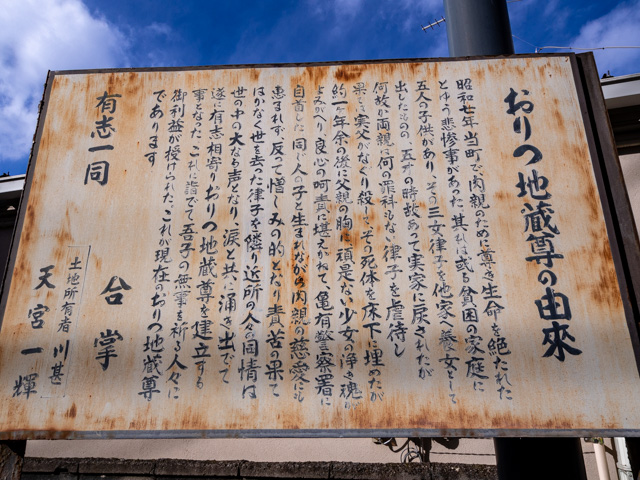 おりつ地蔵尊の由來
昭和七年当町で肉親のために尊き生命を絶たれた
とゆう悲惨事があった其れは或る貧困の家庭に
五人の子供があり、その三女律子を他家へ養女として
出したものの五才の時故あって実家に戻されたが
何故か両親は何の罪科もない律子を虐待し
果ては実父がなぐり殺しその死体を床下に埋めたが
約一ヶ年余の後に父親の胸に頑是ない少女の浄き魂が
よみがへり、良心の呵責に堪えかねて、亀有警察署に
自首した、同じ人の子と生まれながら肉親の慈愛にも
恵まれず反って憎しみの的となり責苦の果て
はかなく世を去った律子を隣り近所の人々の同情は
世の中の大なる声となり、涙と共に涌き出でて
遂に有志相寄りおりつ地蔵尊を建立する
事となった、これに詣でて吾子の無事を祈る人々に
御利益が授けられた、これが現在のおりつ地蔵尊
であります
有志一同
合掌
土地所有者 川甚
天宮一輝